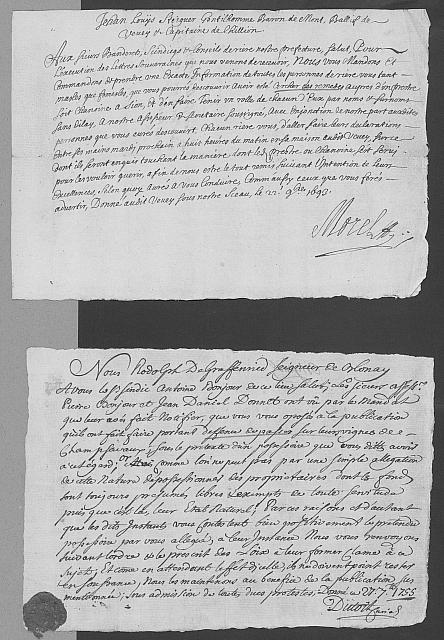 Jehan Louÿs Steiguer Gentilhomme Baron de Mont, Ballif de
Vevey & Capitaine de Chillion
Aux sieurs Banderet, Scindiqs & Conseils de riere nostre prefecture, salut, Pour
l'execution des Lettres Souveraines que nous venons de recevoir, Nous vous Mandons et
Commandons de prendre une Exacte Information de toutes les personnes de riere vous tant
masles que femelles, que vous pourrés descouvrir Avoir esté Cercher des remedes aupres d'un prestre
soit Chanoine à Sion, et d'en faire tenir un rolle de chacun d'Eux par noms & surnoms
sans dilay, a nostre & secretaire soussigné, Avec Injonction de nostre part auxdites
personnes que vous aurés descouvert, Chacun riere vous, d'aller faire leurs declarations
Entre ses mains mardy prochain a huit heures du matin en sa maison audit Vevey, sur ce
dont ils seront enquis touchant la maniere, dont led. prestre ou Chanoine s'est servi
pour les vouloir guerir, afin de nous estre le tout remis, suivant l'Intention de Leurs
Excellences, Selon quoy aurés à vous Conduire, Comm'aussy ceux que vous ferés
advertir, Donné audit Vevey sous nostre Sceau, le 22e 9bre 1693.
Nous Rodolph De Graffenried Seigneur de
A vous le Sindic Antoine Bonjour de ce lieu salut; Les sieurs assesseur
Pierre Bonjour et Jean Daniel Donnet ont vû par le Mandat
que leur avés fait Notifier, que vous vous oposés à la publication
qu'ils ont fait faire portant deffenses de passer sur leurs vignes de
Champsavaux, sous le pretexte d'un possessoire que vous dittes avoir
a cet égard; comme l'on ne peut pas par une simple allegation
de cette Nature deposseder des proprietaires dont les fonds
sont toujours présumés libres & exempts de toute servitude
puis que c'est là, leur état Naturel; Par ces raisons et d'autant
que les dits Instants vous Contestent bien positivement le prétendu
possessoire par vous allegué, à leur Instance Nous vous renvoyons
suivant l'ordre & le prescrit des Loix à leur former Clame à ce
Sujet; Et comme en attendant l'effet d'icelle, ils ne doivent point rester
en souffrance, Nous les maintenons au benefice de la publication sus
mentionnée; sous admission de toutes dues protestes; Donné ce 27. 7. 1755